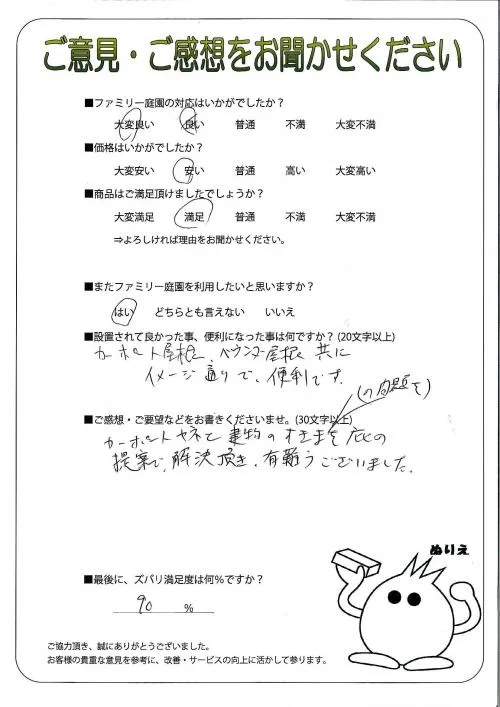 ご意見・ご感想をお聞かせください
■ファミリー庭園の対応はいかがでしたか？
大変良い 良い 普通 不満 大変不満
■価格はいかがでしたか？
大変安い 安い 普通 高い 大変高い
■商品はご満足頂けましたでしょうか？
大変満足 満足 普通 不満 大変不満
⇒よろしければ理由をお聞かせください。
■またファミリー庭園を利用したいと思いますか？
はい どちらとも言えない いいえ
■設置されて良かった事、便利になった事は何ですか？(20文字以上)
カーポート屋根、ベランダー屋根 共に
イメージ通りで、便利です。
■ご感想・ご要望などをお書きくださいませ。(30文字以上)
(の問題を)
カーポートヤネと建物のすきまを庇の
提案で、解決頂き、有難うございました。
ぬりえ
■最後に、ズバリ満足度は何％ですか？
90 %
ご協力頂き、誠にありがとうございました。
お客様の貴重な意見を参考に、改善・サービスの向上に活かして参ります。